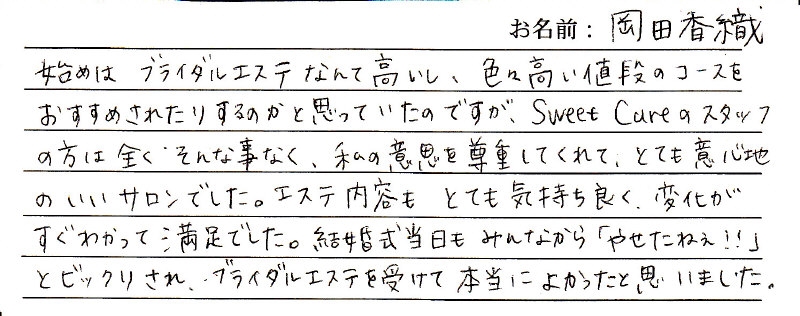 お名前：岡田香織
始めは ブライダルエステなんて高いし、色々高い値段のコースを
おすすめされたりするのかと思っていたのですが、Sweet Cureのスタッフ
の方は全くそんな事なく、私の意思を尊重してくれて、とても居心地
のいいサロンでした。エステ内容も とても気持ち良く、変化が
すぐわかって満足でした。結婚式当日もみんなから「やせたねぇ!!」
とビックリされ、ブライダルエステを受けて本当によかったと思いました。